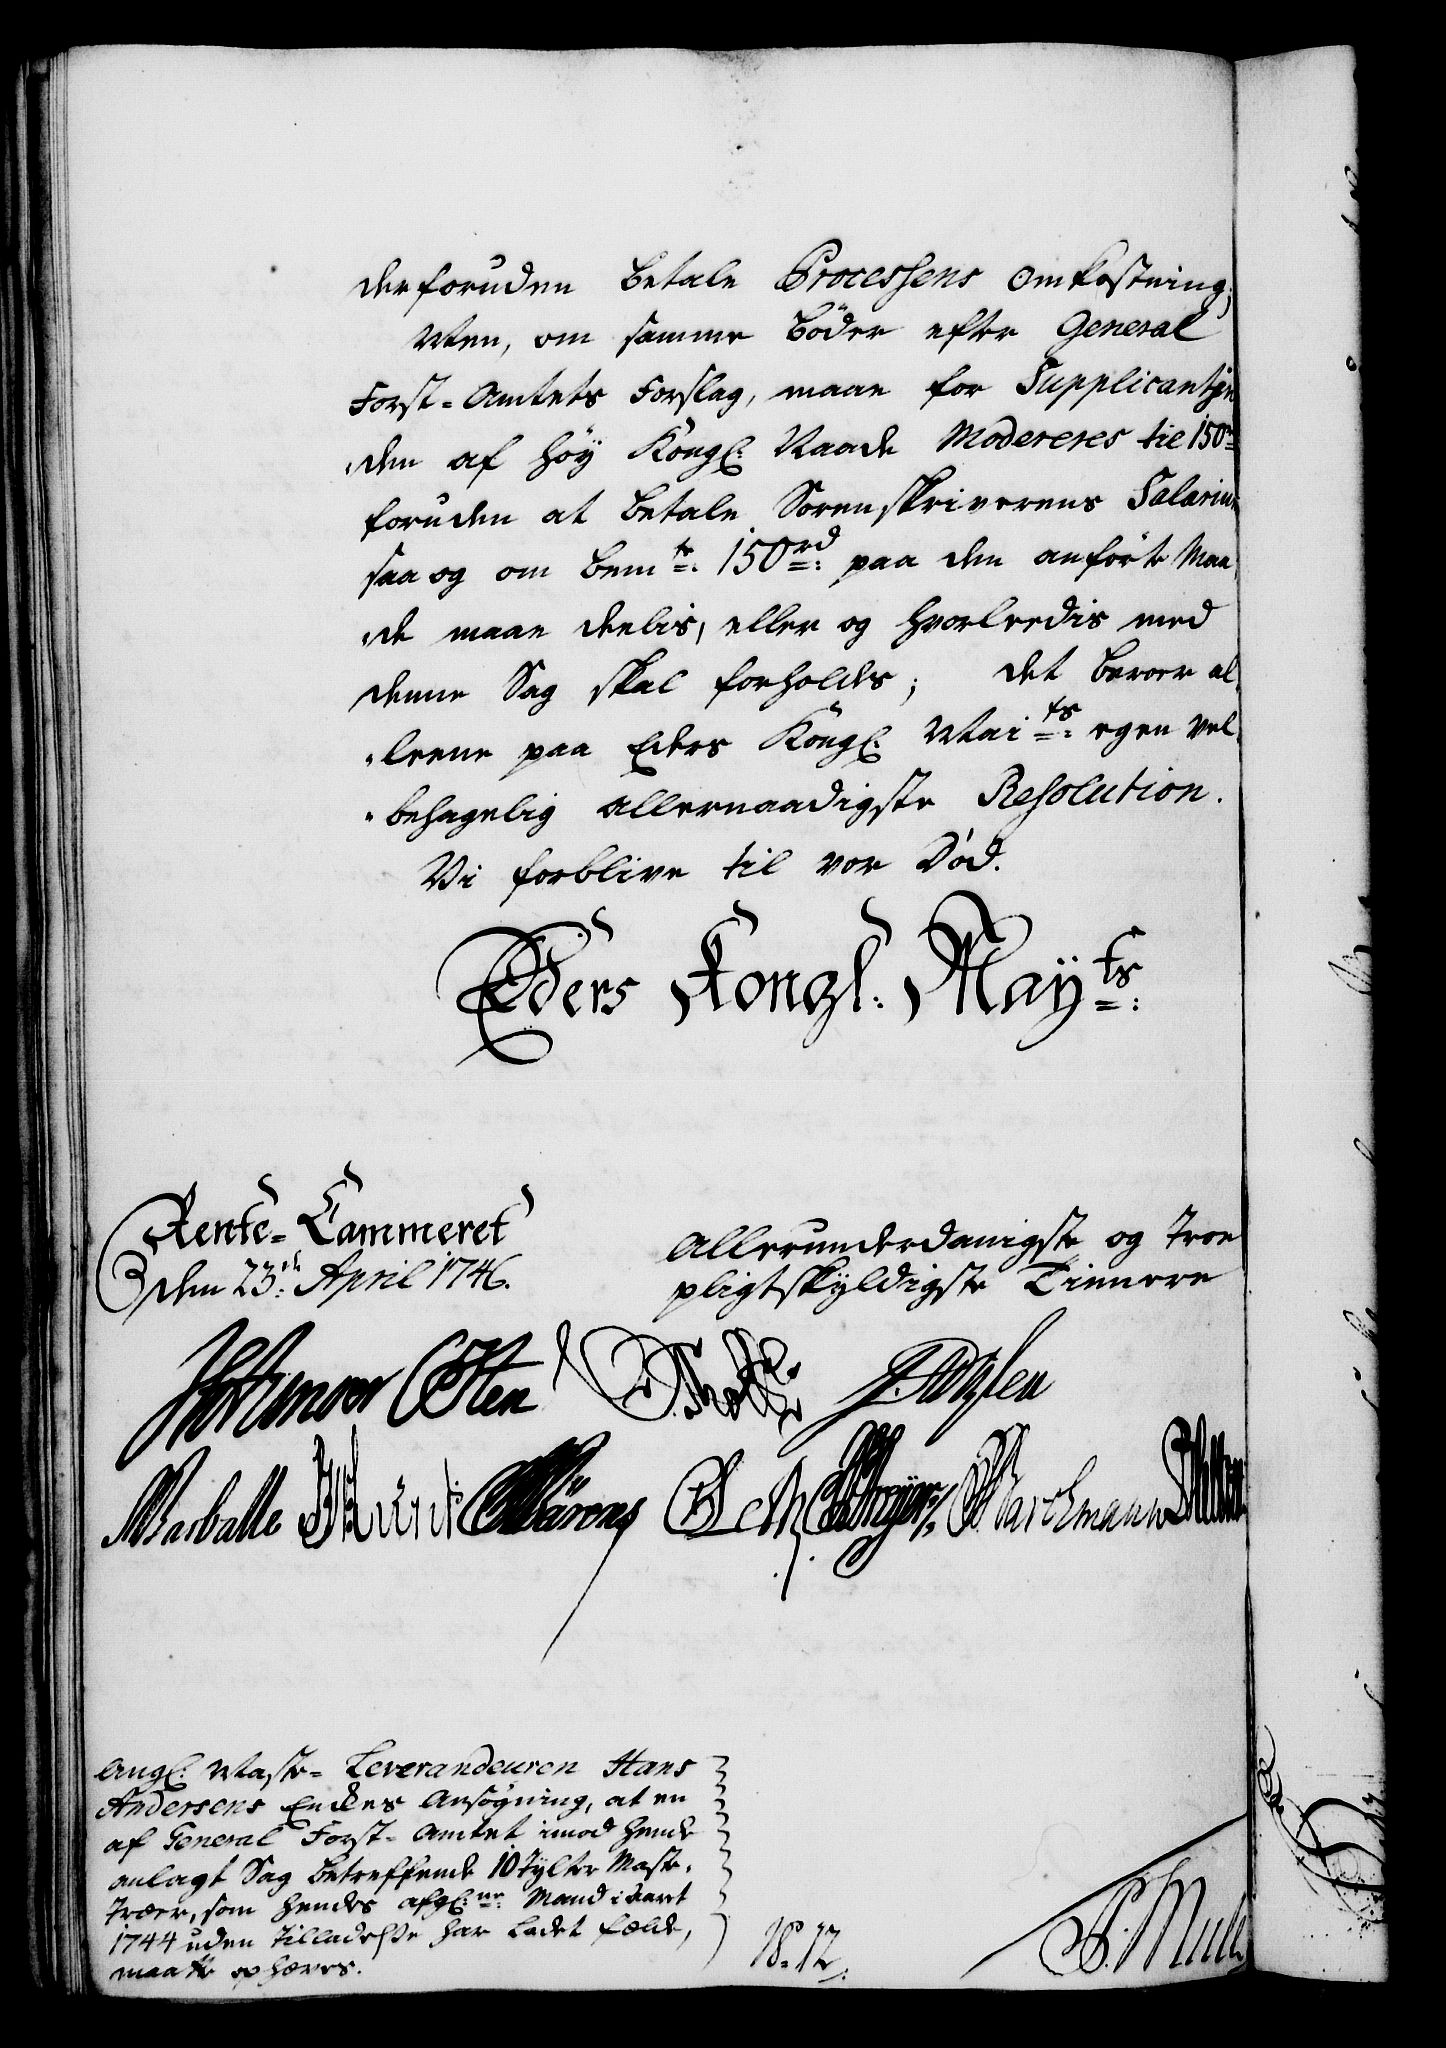 derforuden betale Processens Omkostning;
Men, om samme Bøder efter General
Forst-Amtets Forslag, maae for Supplicantin-
den af høy Kongl: Naade Modereres til 150 rd
foruden at betale Sorenskriverens Salarium
saa og om bemte: 150 rd: paa den anførte Maa-
de maae deelis, eller og hvorledis med
denne Sag skal forholdes; det beroer al-
leene paa Eders Kongl: Maits: egen vel-
behagelig allernaadigste Resolution.
Vi forblive til vor Död.
Eders Kongl: Mayts:
Rente-Cammeret
den 23de: April 1746.
Allerunderdanigste og troe
pligtskyldigste Tienere
Holtzmoer Osten
Marballe Wärens Leth Marchmann
Angl: Maste-Leverandeuren Hans
Andersens Enckes Ansögning, at en
af General Forst-Amtet imod hende
anlagt Sag betreffende 10 Tylter Maste-
Træer, som hendes afgl:ne: Mand i Aaret
1744 uden Tilladelse har ladet fælde,
maatte ophæves.
N: 12.